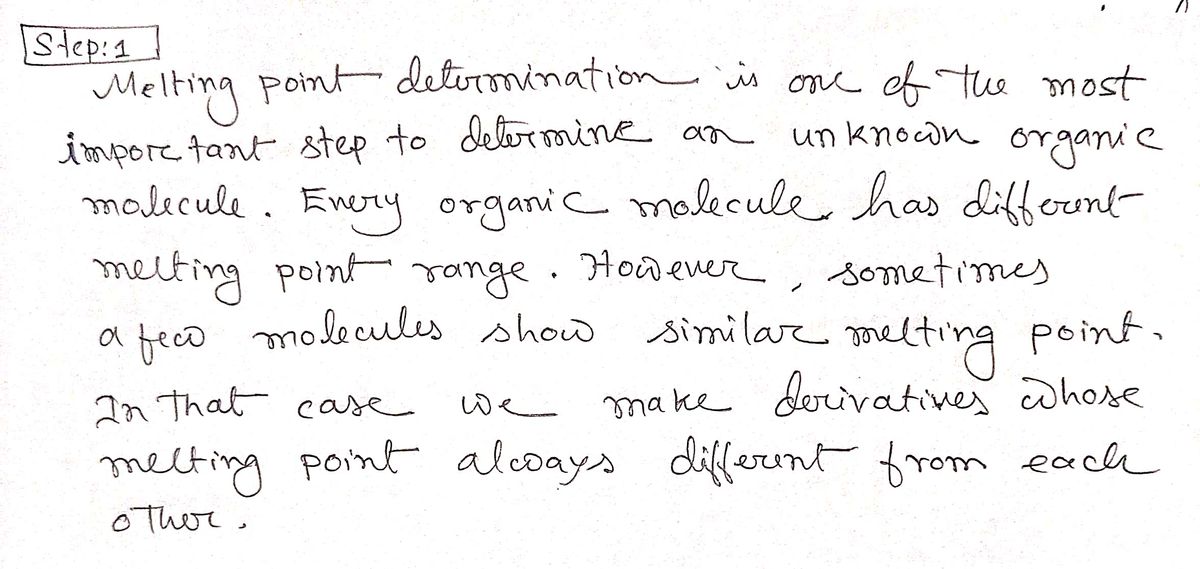 Step:1
Melting point determination is one of the most
important step to determine an unknown organic
molecule. Every organic molecule has different
melting point range. However, sometimes
a few molecules show similar melting point.
In that case we make derivatives whose
melting point always different from each
other.